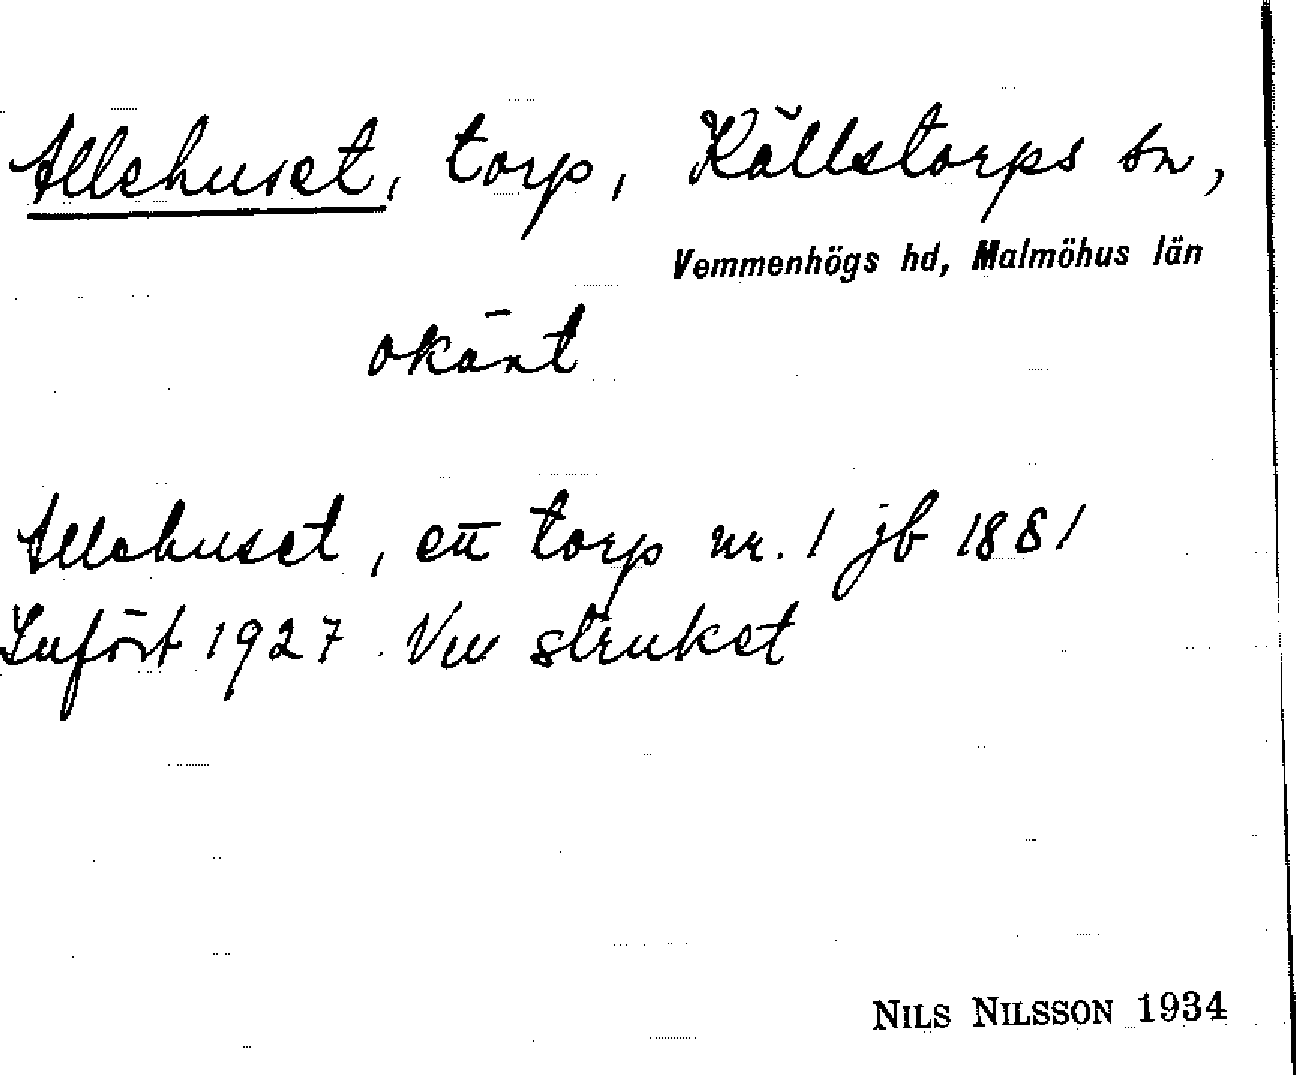 Allehuset, torp, Källstorps sn,
Vemmenhögs hd, Malmöhus län
okänt
Allehuset, ett torp nr. 1 jb 1881
Infört 1927. Nu struket
NILS NILSSON 1934